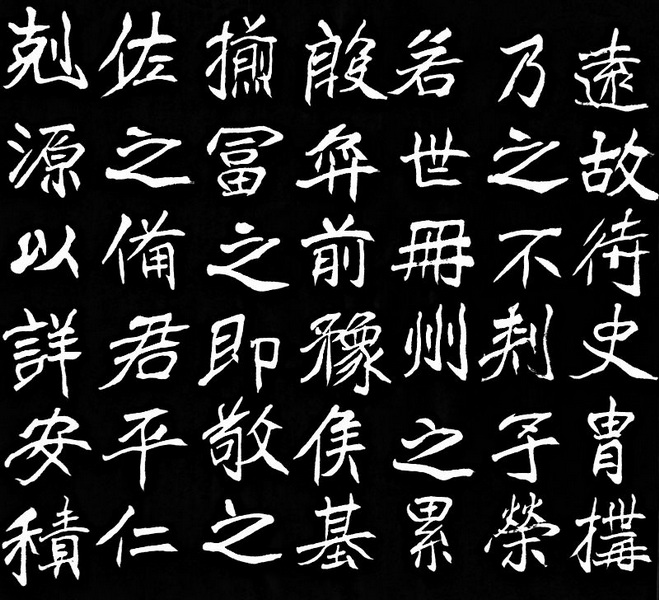 遠故待史冑搆
乃之不刺予榮
若世冊州之累
殷弈前豫侯基
撫冨之即敬之
佐之備君平仁
剋源以詳安積